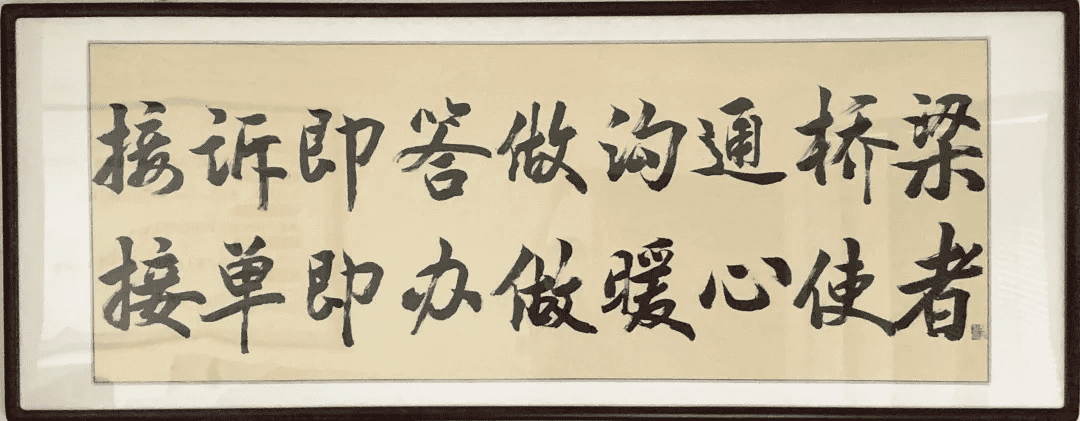 接诉即答做沟通桥梁
接单即办做暖心使者